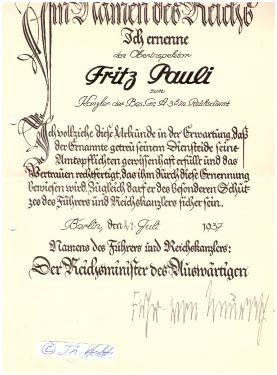 Im Namen des Reichs
Ich ernenne
den Oberinspektor
Fritz Pauli
zum
Kanzler der Bes. Gr. A 3 b im
Ich vollziehe diese Urkunde in der Erwartung, daß
der Ernannte getreu seinem Diensteide seine
Amtspflichten gewissenhaft erfüllt und das
Vertrauen rechtfertigt, das ihm durch diese Ernennung
bewiesen wird. Zugleich darf er des besonderen Schut-
zes des Führers und Reichskanzlers sicher sein.
Berlin, den Juli 1937
Namens des Führers und Reichskanzlers:
Der Reichsminister des Auswärtigen